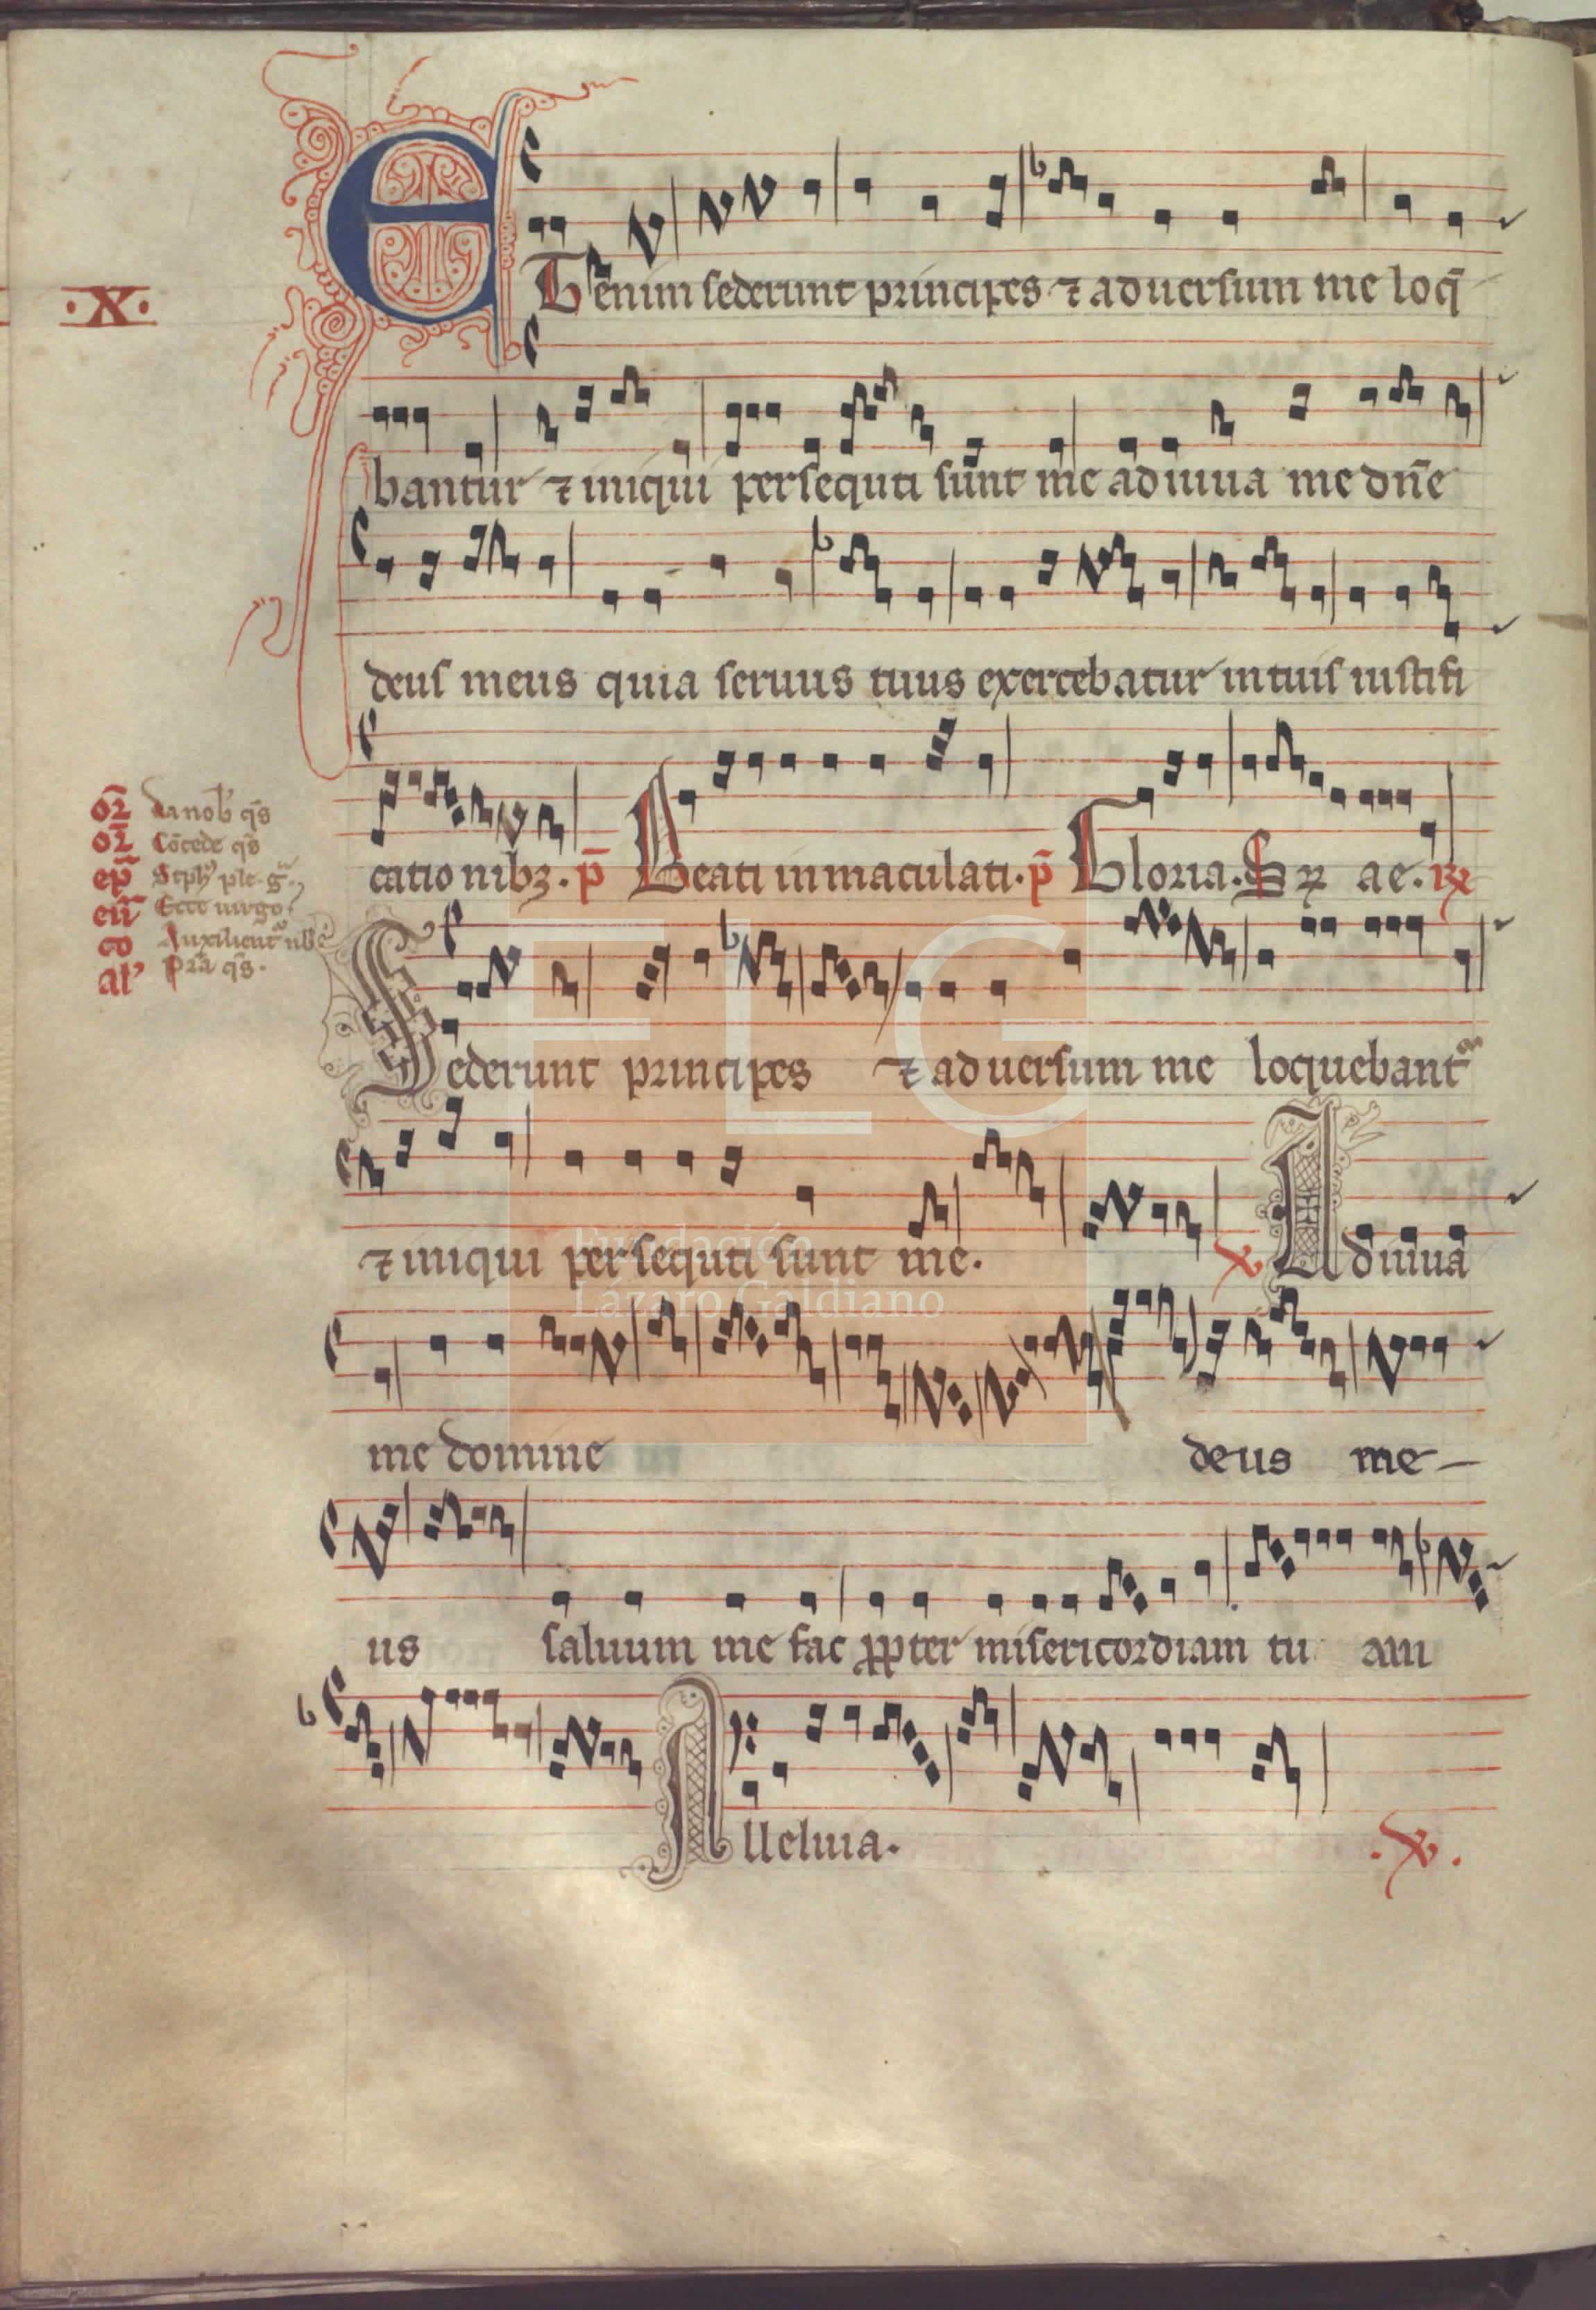 ·X·
EThenim sederunt principes ⁊ aduersum me loq̄
bantur ⁊ iniqui persequti sunt me adiuua me dn̄e
deus meus quia seruus tuus exercebatur in tuis iustifi
cationibꝫ. p̄ Beati inmaculati. p̄ Gloria. S ꝝ ae. ℞
or̄ Da nob' qs̄
or̄ Cōcede qs̄
ep̄
eū Ecce uirgo
co
al' qs̄.
Sederunt principes ⁊ aduersum me loquebant᷑
⁊ iniqui persequti sunt me. ℣ Adiuua
me domine deus me-
us saluum me fac ꝓpter misericordiam tu am
Alleluia. .℣.
FLG
Fundación
Lázaro Galdiano